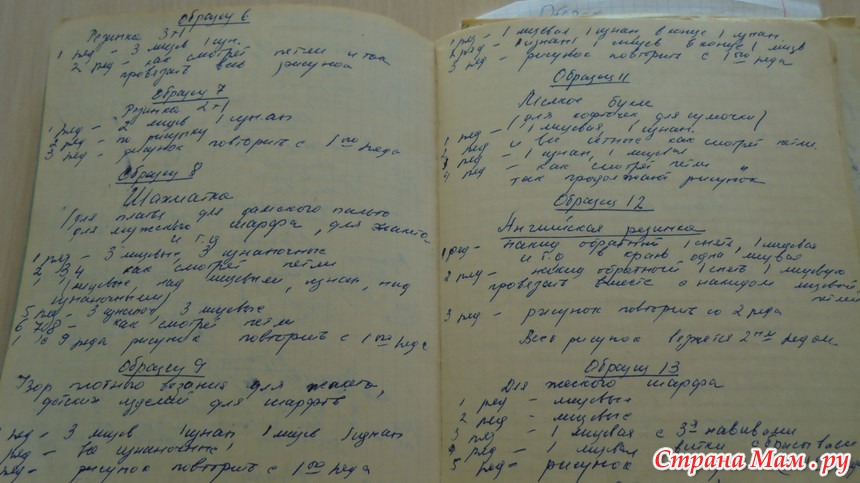 Образец 6
Резинка 3+1
1 ряд - 3 лицев 1 изн.
2 ряд - как смотрят петли и так
провязать весь рисунок
Образец 7
Резинка 2+1
1 ряд - 2 лицев 1 изнан
2 ряд - по рисунку
3 ряд - рисунок повторить с 1го ряда
Образец 8
Шахматка
(для платья, для дамского пальто
для мужского шарфа, для жакета
и т.д
1 ряд - 3 лицевые, 3 изнаночные
2 3 4 как смотрят петли
(лицевые, над лицевыми, изнан, над
изнаночными)
5 ряд - 3 изнаноч, 3 лицевые
6 7 8 - как смотрят петли
с 9 ряда рисунок повторить с 1го ряда
Образец 9
Узор плотного вязания для жакета,
детских изделий для шарфов
1 ряд - 3 лицев 1 изнан 1 лицев 1 изнан
ряд - все изнаночные
ряд - рисунок повторить с 1го ряда
1 ряд - 1 лицевая 1 изнан, в конце 1 изнан.
2 ряд - 1 изнан, 1 лицев в конце 1 лицев
3 ряд - рисунок повторить с 1го ряда
Образец 11
Мелкое букле
(для кофточек, для сумочки)
1 ряд - 1 лицевая, 1 изнан.
2 ряд - и все четные как смотрят петли.
3 ряд - 1 изнан, 1 лицевая
4 ряд - как смотрят петли
так продолжают рисунок
Образец 12
Английская резинка
1 ряд - накид обратный 1 снять, 1 лицевая
и т.д в краю одна лицевая
2 ряд - накид обратный 1 снять 1 лицевую
провязать вместе с накидом лицевой
петлей
3 ряд - рисунок повторить со 2 ряда
Весь рисунок вяжется 2ым рядом.
Образец 13
Для женского шарфа
1 ряд - лицевые
2 ряд - лицевые
3 ряд - 1 лицевая с 3я навивами
4 ряд - 1 лицевая витки сбрасываем
5 ряд - рисунок
Страна Мам.ру